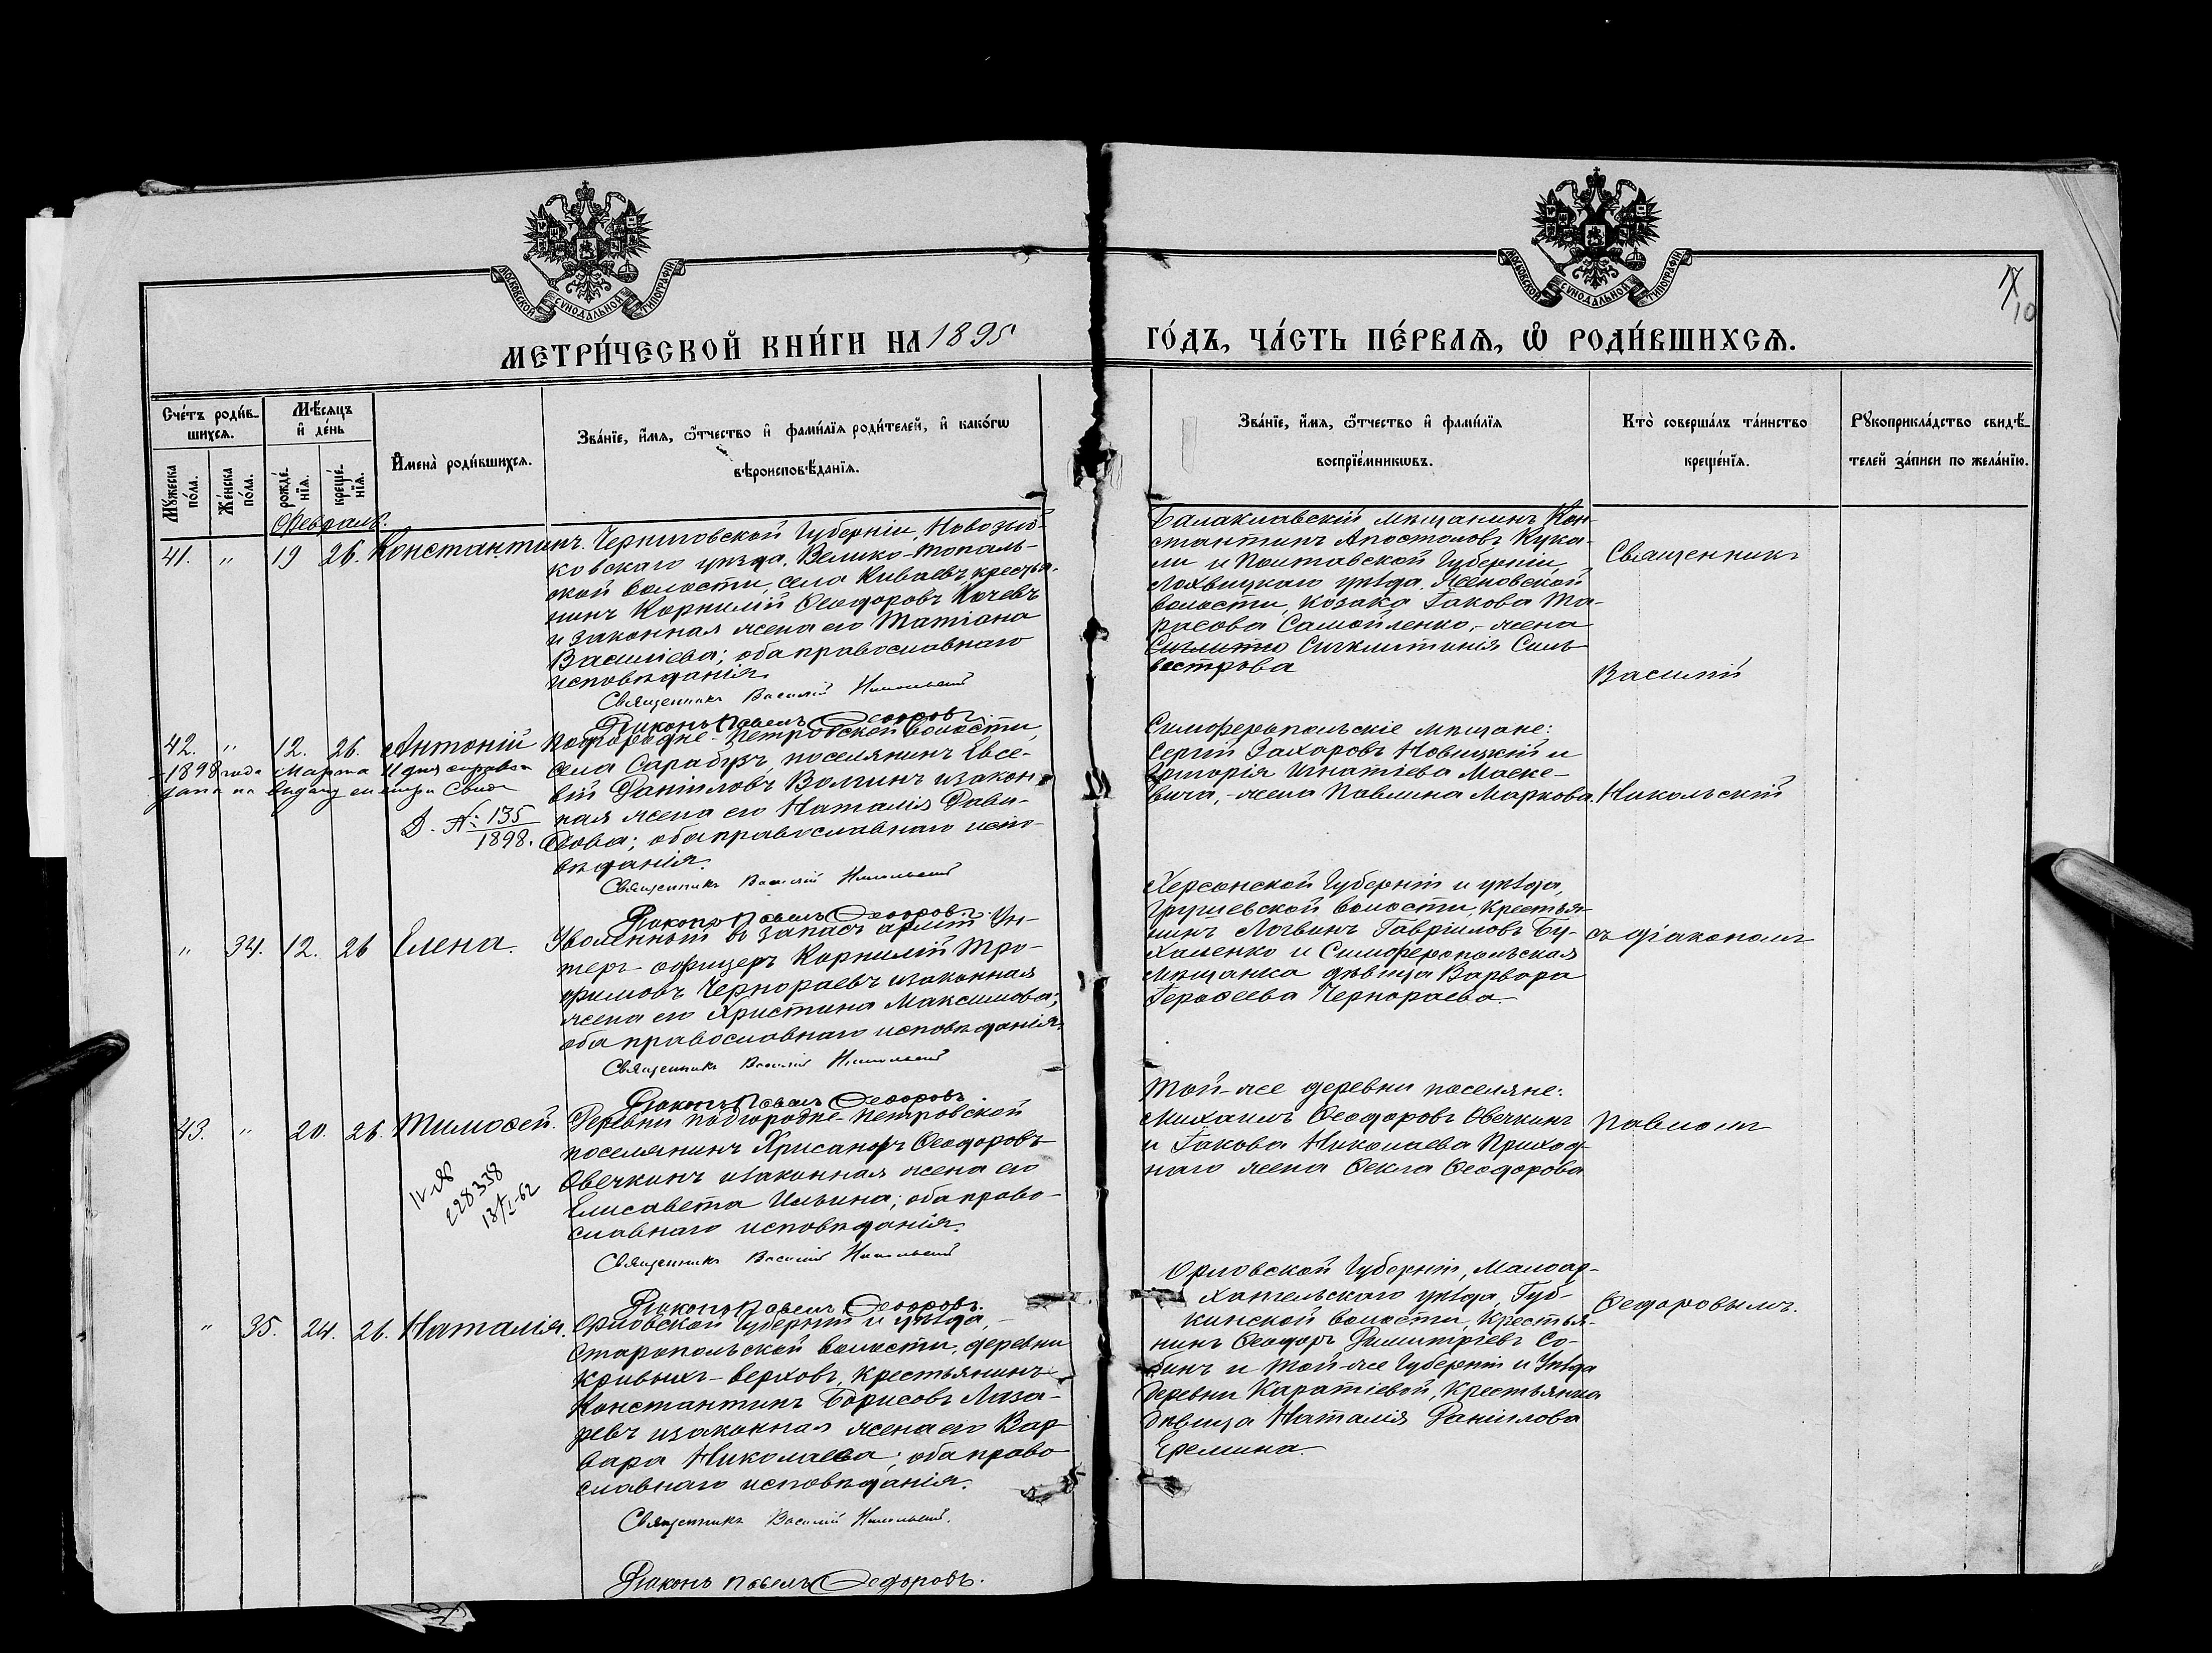 МОСКОВСКОЙ СѴНОДАЛЬНОЙ ТИПОГРАФІИ
МОСКОВСКОЙ СѴНОДАЛЬНОЙ ТИПОГРАФІИ
17
10
МЕТРИ́ЧЕСКОЙ КНИ́ГИ НА 1895
ГО́ДЪ, ЧА́СТЬ ПЕ́РВАѦ, Ѡ҆ РОДИ́ВШИХСѦ.
Сче́тъ роди́в-
шихсѧ.
Мꙋжеска по́ла.
Же́нска по́ла.
Мѣ́сѧцъ
и҆ де́нь
рожде́нїѧ.
креще́нїѧ.
И҆мена̀ роди́вшихсѧ.
Зва́нїе, и҆́мѧ, ѻ҆́тчество и҆ фами́лїѧ роди́телей, и҆ како́гѡ
вѣроисповѣ́данїѧ.
Зва́нїе, и҆́мѧ, ѻ҆́тчество и҆ фами́лїѧ
воспрїе́мникѡвъ.
Кто̀ соверша́лъ та́инство
креще́нїѧ.
Рꙋкоприкла́дство свидѣ́-
телей за́писи по жела́нїю.
Февраль.
41. " 19 26. Константинъ.
Черниговской Губерніи, Новозыб-
ковскаго уѣзда, Велико-тополь-
ской волости, села Киваевъ, крестья-
нинъ Корнилій Ѳеодоровъ Кочевъ
и законная жена его Татіана
Василіева; оба православнаго
исповѣданія.
Священникъ Василій Никольскій
Діаконъ Павелъ Ѳедоровъ.
Балаклавскій мѣщанинъ Кон-
стантинъ Апостоловъ Кука-
ли и Полтавской Губерніи,
Лохвицкаго уѣзда, Ясеновской
волости, козака Іакова Та-
расова Самойленко, - жена
Синклитикія Силь-
вестрова
Священникъ
Василій
42. " 12. 26. Антоній
1898 года Марта 11 дня
Д. № 135
1898.
Подгородне-Петровской волости,
села Сарабузъ, поселянинъ Евсе-
вій Даніиловъ Волгинъ и закон-
ная жена его Наталія Дави-
дова; оба православнаго испо-
вѣданія.
Священникъ Василій Никольскій
Діаконъ Павелъ Ѳедоровъ.
Симферопольскіе мѣщане:
Сергій Захаровъ Новицкій и
Григорія Игнатіева Маске-
вича, - жена Павлина Маркова.
Никольскій
" 34. 12. 26 Елена.
Уволенный въ запасъ арміи Ун-
теръ-офицеръ Корнилій Тро-
фимовъ Чернораевъ и законная
жена его Христина Максимова;
оба православнаго исповѣданія.
Священникъ Василій Никольскій
Діаконъ Павелъ Ѳедоровъ.
Херсонской Губерніи и уѣзда,
Грушевской волости, Крестья-
нинъ Логвинъ Гавріиловъ Бу-
халенко и Симферопольская
мѣщанка дѣвица Варвара
Іероѳеева Чернораева.
съ діакономъ
43. " 20. 26. Тимоѳей.
228338
13/I-62
Деревни Подгородне-Петровской
поселянинъ Хрисанѳъ Ѳеодоровъ
Овечкинъ и законная жена его
Елисавета Ильина; оба право-
славнаго исповѣданія.
Священникъ Василій Никольскій
Діаконъ Павелъ Ѳедоровъ.
Той-же деревни поселяне:
Михаилъ Ѳеодоровъ Овечкинъ
и Іакова Николаева Приход-
наго жена Ѳекла Ѳеодорова
Павломъ
" 35. 24. 26. Наталія.
Орловской Губерніи и уѣзда,
Старопольской волости, деревни
Кривыхъ-верховъ, Крестьянинъ
Константинъ Борисовъ Лаза-
ревъ и законная жена его Вар-
вара Николаева; оба право-
славнаго исповѣданія.
Священникъ Василій Никольскій.
Діаконъ Павелъ Ѳедоровъ.
Орловской Губерніи, Малоар-
хангельскаго уѣзда, Губ-
кинской волости, Крестья-
нинъ Ѳеодоръ Димитріевъ Со-
бинъ и той-же Губерніи и Уѣзда
деревни Каратіевой, Крестьянка
дѣвица Наталія Даніилова
Еремина
Ѳедоровымъ.